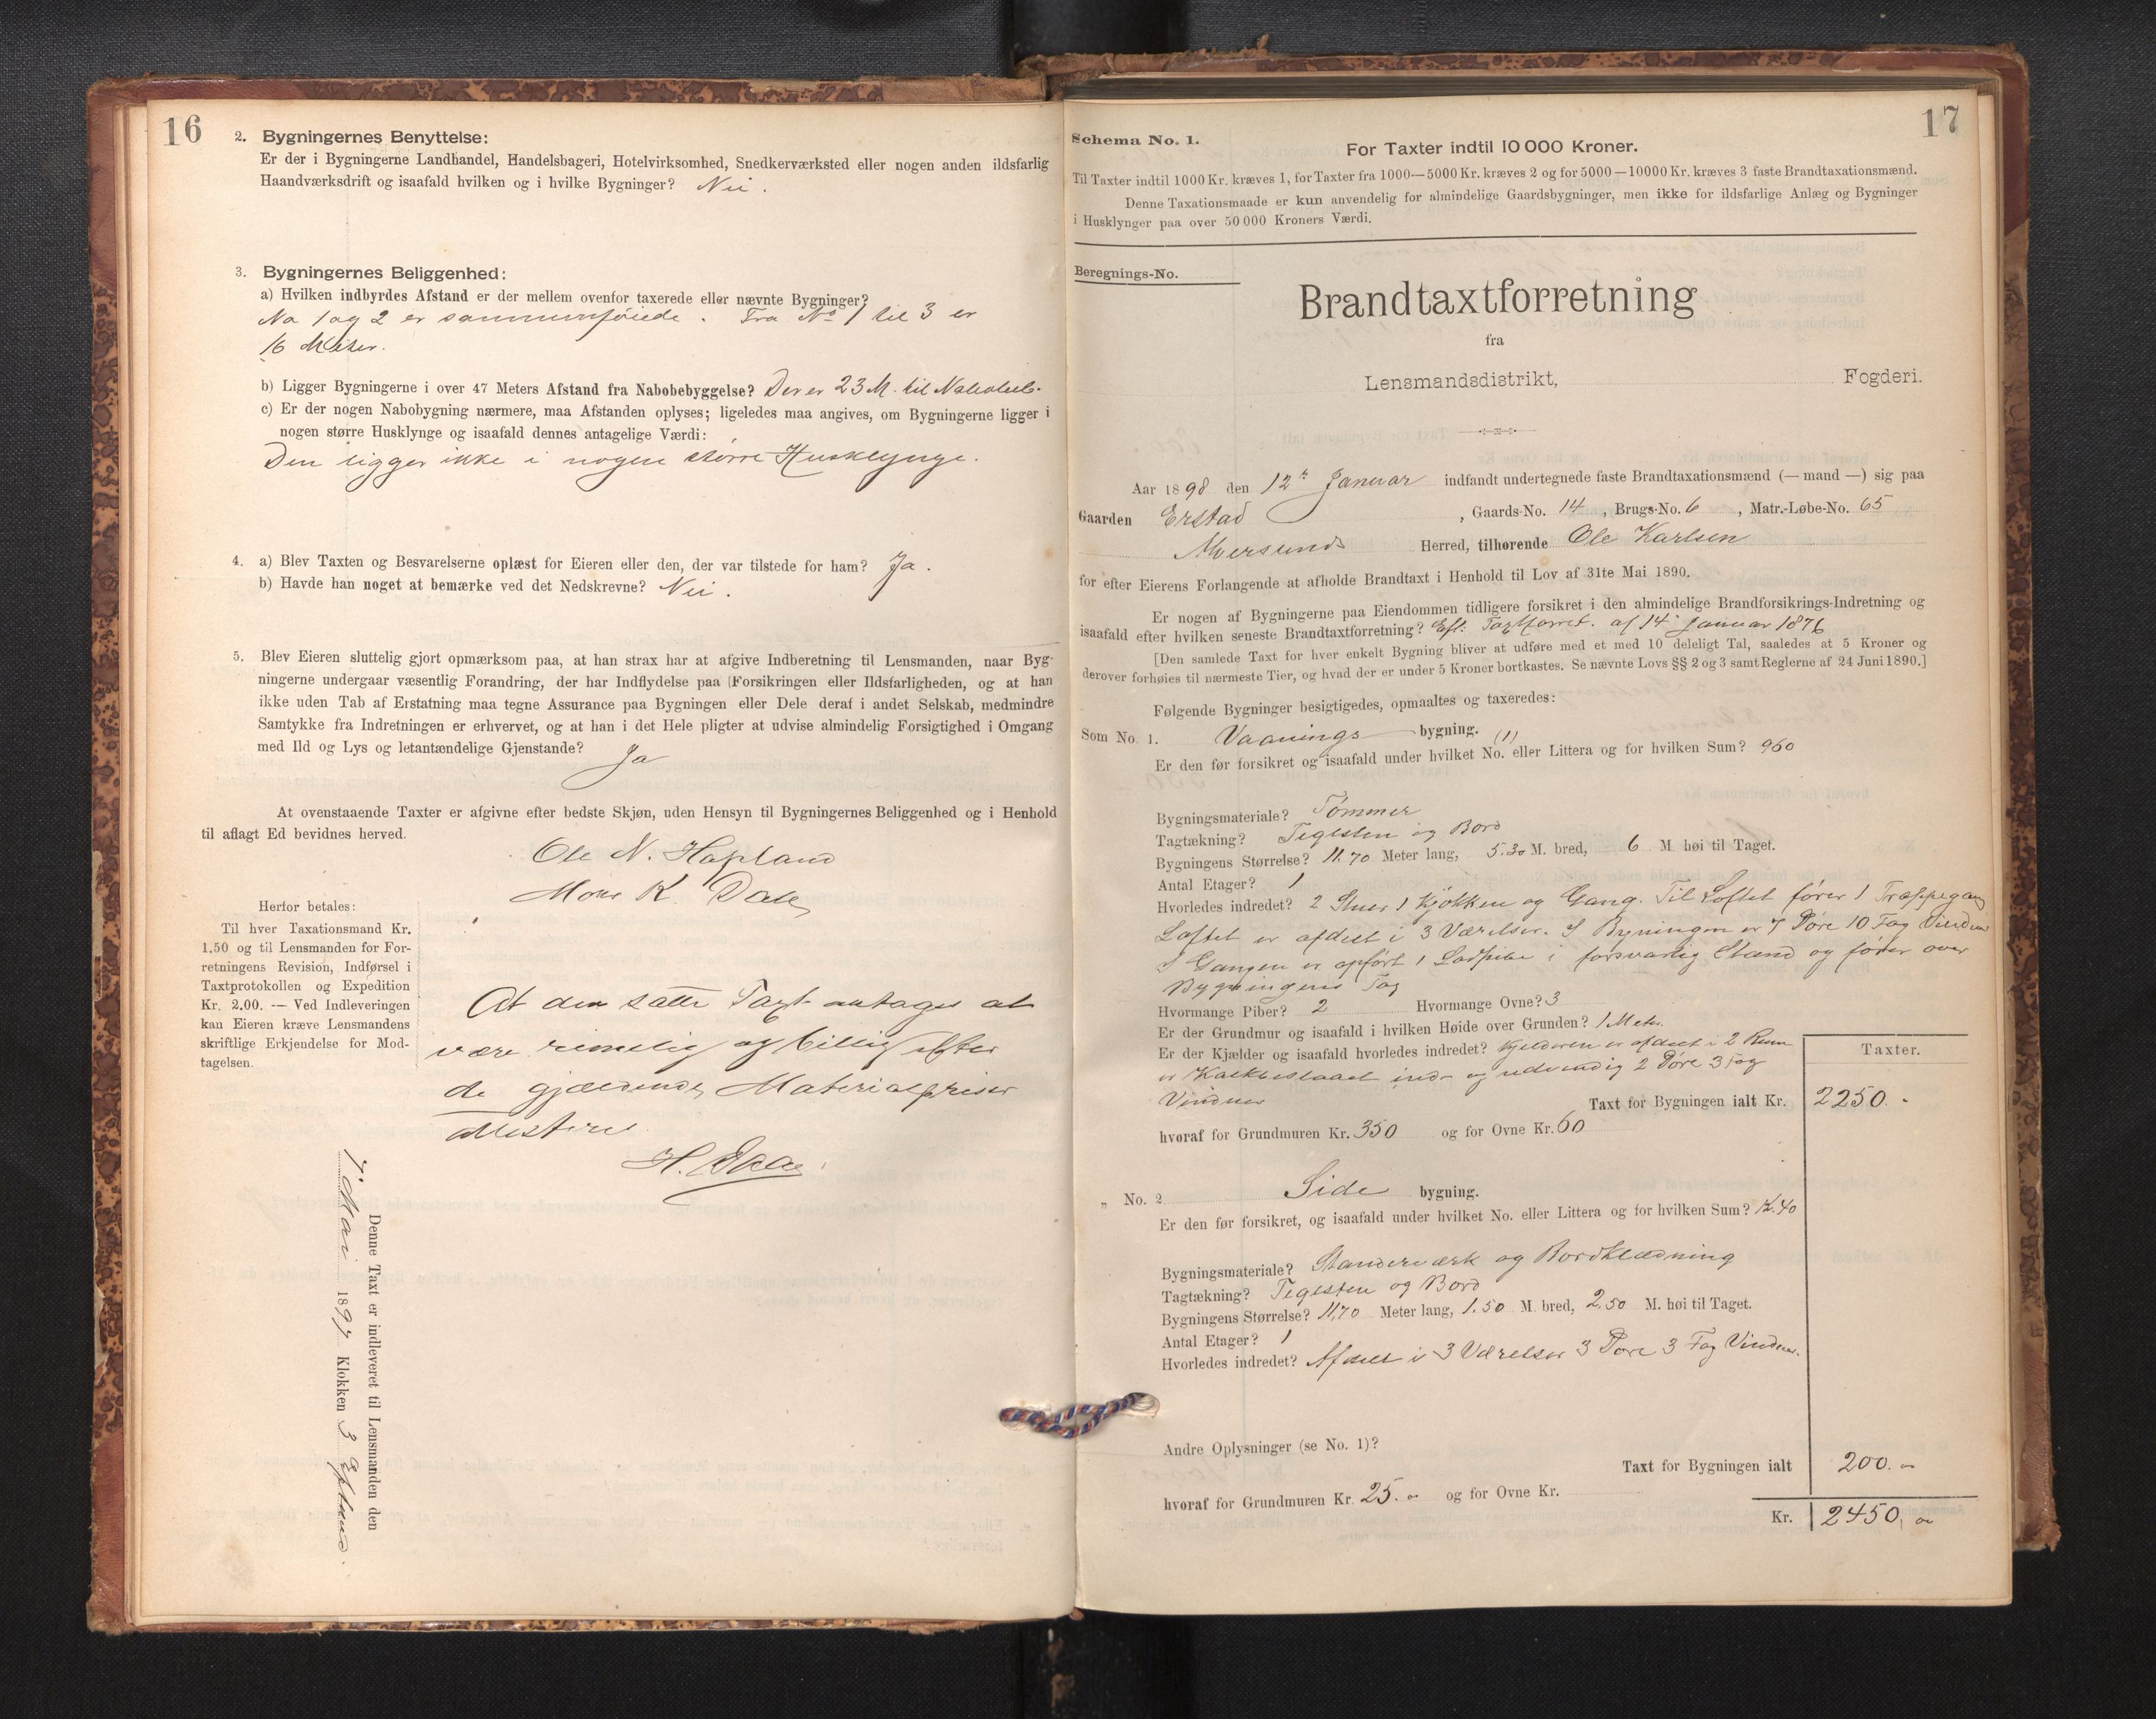 16
2. Bygningernes Benyttelse:
Er der i Bygningerne Landhandel, Handelsbageri, Hotelvirksomhed, Snedkerværksted eller nogen anden ildsfarlig
Haandværksdrift og isaafald hvilken og i hvilke Bygninger? Nei.
3. Bygningernes Beliggenhed:
a) Hvilken indbyrdes Afstand er der mellem ovenfor taxerede eller nævnte Bygninger?
No 1 og 2 er sammenføiede. Fra No 1 til 3 er
16 Meter.
b) Ligger Bygningerne i over 47 Meters Afstand fra Nabobebyggelse? Der er 23 M. til
c) Er der nogen Nabobygning nærmere, maa Afstanden oplyses; ligeledes maa angives, om Bygningerne ligger i
nogen større Husklynge og isaafald dennes antagelige Værdi:
Den ligger ikke i nogen større Husklynge.
4. a) Blev Taxten og Besvarelserne oplæst for Eieren eller den, der var tilstede for ham? Ja.
b) Havde han noget at bemærke ved det Nedskrevne? Nei.
5. Blev Eieren sluttelig gjort opmærksom paa, at han strax har at afgive Indberetning til Lensmanden, naar Byg-
ningerne undergaar væsentlig Forandring, der har Indflydelse paa (Forsikringen eller Ildsfarligheden, og at han
ikke uden Tab af Erstatning maa tegne Assurance paa Bygningen eller Dele deraf i andet Selskab, medmindre
Samtykke fra Indretningen er erhvervet, og at han i det Hele pligter at udvise almindelig Forsigtighed i Omgang
med Ild og Lys og letantændelige Gjenstande? Ja
At ovenstaaende Taxter er afgivne efter bedste Skjøn, uden Hensyn til Bygningernes Beliggenhed og i Henhold
til aflagt Ed bevidnes herved.
Ole N. Hopland
Mons K. Dale
Herfor betales:
Til hver Taxationsmand Kr.
1,50 og til Lensmanden for For-
retningens Revision, Indførsel i
Taxtprotokollen og Expedition
Kr. 2.00. — Ved Indleveringen
kan Eieren kræve Lensmandens
skriftlige Erkjendelse for Mod-
tagelsen.
At den satte Taxt antages at
være rimelig og billig efter
de gjældende Materialpriser
attesteres
Denne Taxt er indleveret til Lensmanden den
7 Mai 1897 Klokken 3
17
Schema No. 1.
For Taxter indtil 10 000 Kroner.
Til Taxter indtil 1000 Kr. kræves 1, for Taxter fra 1000—5000 Kr. kræves 2 og for 5000—10000 Kr. kræves 3 faste Brandtaxationsmænd.
Denne Taxationsmaade er kun anvendelig for almindelige Gaardsbygninger, men ikke for ildsfarlige Anlæg og Bygninger
i Husklynger paa over 50 000 Kroners Værdi.
Beregnings-No.
Brandtaxtforretning
fra
Lensmandsdistrikt, Fogderi.
Aar 1898 den 12te Januar indfandt undertegnede faste Brandtaxationsmænd (— mand —) sig paa
Gaarden Erstad, Gaards-No. 14, Brugs-No. 6, Matr.-Løbe-No. 65
Alversunds Herred, tilhørende Ole Karlsen
for efter Eierens Forlangende at afholde Brandtaxt i Henhold til Lov af 31te Mai 1890.
Er nogen af Bygningerne paa Eiendommen tidligere forsikret i den almindelige Brandforsikrings-Indretning og
isaafald efter hvilken seneste Brandtaxtforretning? Eft. Taxtforret. af 14 Januar 1876
[Den samlede Taxt for hver enkelt Bygning bliver at udføre med et med 10 deleligt Tal, saaledes at 5 Kroner og
derover forhøies til nærmeste Tier, og hvad der er under 5 Kroner bortkastes. Se nævnte Lovs §§ 2 og 3 samt Reglerne af 24 Juni 1890.]
Følgende Bygninger besigtigedes, opmaaltes og taxeredes:
Som No. 1. Vaanings bygning. (1)
Er den før forsikret og isaafald under hvilket No. eller Littera og for hvilken Sum? 960
Bygningsmateriale? Tømmer
Tagtækning? Teglsten og Bord
Bygningens Størrelse? 11.70 Meter lang, 5.30 M. bred, 6 M. høi til Taget.
Antal Etager? 1
Hvorledes indredet? 2 Stuer 1 Kjøkken og Gang. Til Loftet fører 1 Trappegang
Loftet er afdelt i 3 Værelser. I Bygningen er 7 Døre 10 Fag Vinduer
I Gangen er opført 1 i forsvarlig Stand og fører over
Bygningens Tag
Hvormange Piber? 2 Hvormange Ovne? 3
Er der Grundmur og isaafald i hvilken Høide over Grunden? 1 Meter.
Er der Kjælder og isaafald hvorledes indredet? Kjelderen er afdelt i 2 Rum
er Kalkeslaaet ind- og udvendig 2 Døre 3 Fag
Vinduer
Taxter.
Taxt for Bygningen ialt Kr. 2250.-
hvoraf for Grundmuren Kr. 350 og for Ovne Kr. 60
„ No. 2 Side bygning.
Er den før forsikret, og isaafald under hvilket No. eller Littera og for hvilken Sum? K. 40
Bygningsmateriale? Standerværk og Bordklædning
Tagtækning? Teglsten og Bord
Bygningens Størrelse? 11,70 Meter lang, 1.50 M. bred, 2,50 M. høi til Taget.
Antal Etager? 1
Hvorledes indredet? Afdelt i 3 Værelser 3 Døre 3 Fag Vinduer.
Andre Oplysninger (se No. 1)?
Taxt for Bygningen ialt 200.-
hvoraf for Grundmuren Kr. 25.- og for Ovne Kr.
Kr. 2450,-